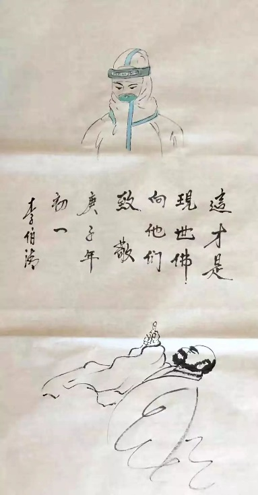 這才是
現世佛
向他们
致敬
庚子年
初一
李伯清